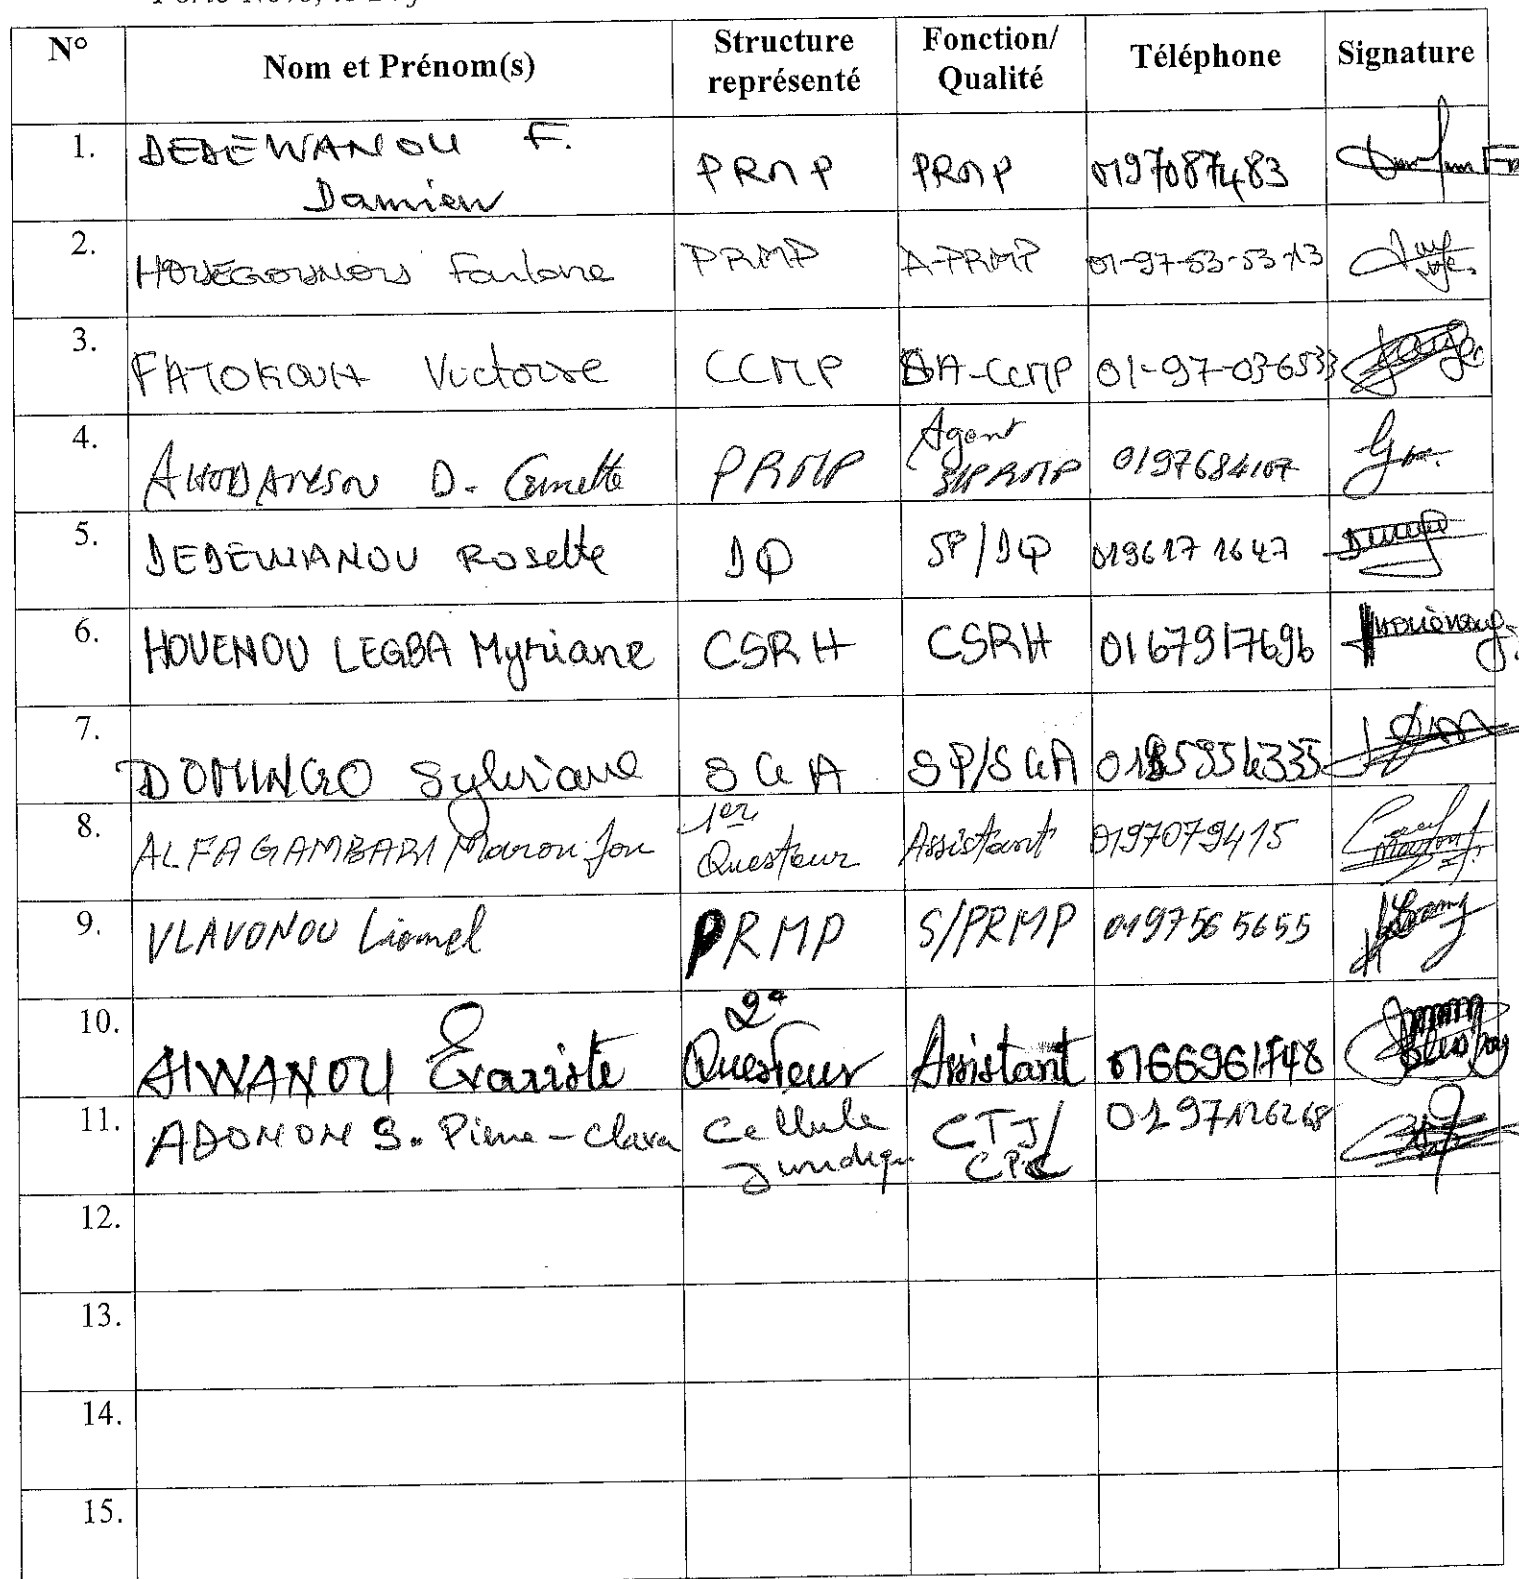 N° Nom et Prénom(s) Structure représenté Fonction/ Qualité Téléphone Signature
1. DEDEWANOU F. Damien PRMP PRMP 0197087483
2. PRMP A-PRMP 01-97-53-53-13
3. FATOKOUH Victoire CCMP SA-CCMP 01-97-03-6533
4. D. PRMP Agent S/PRMP 0197684107
5. DEDEWANOU Rosette DQ SP/DQ 019617 1647
6. HOUENOU LEGBA Myriane CSRH CSRH 0167917696
7. DOMINGO Sylviane SGA SP/SGA
8. ALFA GAMBARI 1er Questeur Assistant 0197079415
9. VLAVONOU Lionel PRMP S/PRMP 0197565655
10. AIWANOU Evariste 2e Questeur Assistant 0166961748
11. ADONON S. Pierre-Claver Cellule Juridique CTJ/ 0197126268
12.
13.
14.
15.